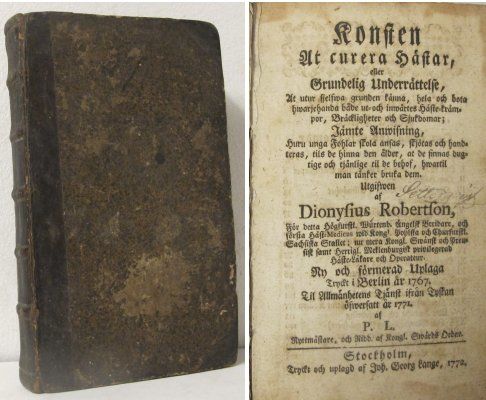 Konsten
At curera Hästar,
eller
Grundelig Underrättelse,
At utur sjelfwa grunden känna, hela och bota
hwarjehanda både ut- och inwärtes Häste-kräm-
por, Bräckligheter och Sjukdomar;
Jämte Anwisning,
Huru unga Fohlar skola ansas, skjötas och hand-
teras, tils de hinna den ålder, at de finnas dug-
tige och tjänlige til de behof, hwartil
man tänker bruka dem.
Utgifwen
af
Dionysius Robertson,
För detta Högfurstl. Würtenb. Engelsk Beridare, och
första Häst-Medicus wid Kongl. Pohlska och Churfurstl.
Sachsiska Stallet; nu mera Kongl. Swänsk och Preu-
sisk samt Hertigl. Meklenburgisk privilegerad
Häste-Läkare och Operateur.
Ny och förmerad Uplaga
Tryckt i Berlin år 1767.
Til Allmänhetens Tjänst ifrån Tyskan
öfwersatt år 1771.
af
P. L.
Ryttmästare, och Ridd. af Kongl. Swärds Orden.
Stockholm,
Tryckt och uplagd af Joh. Georg Lange, 1772.